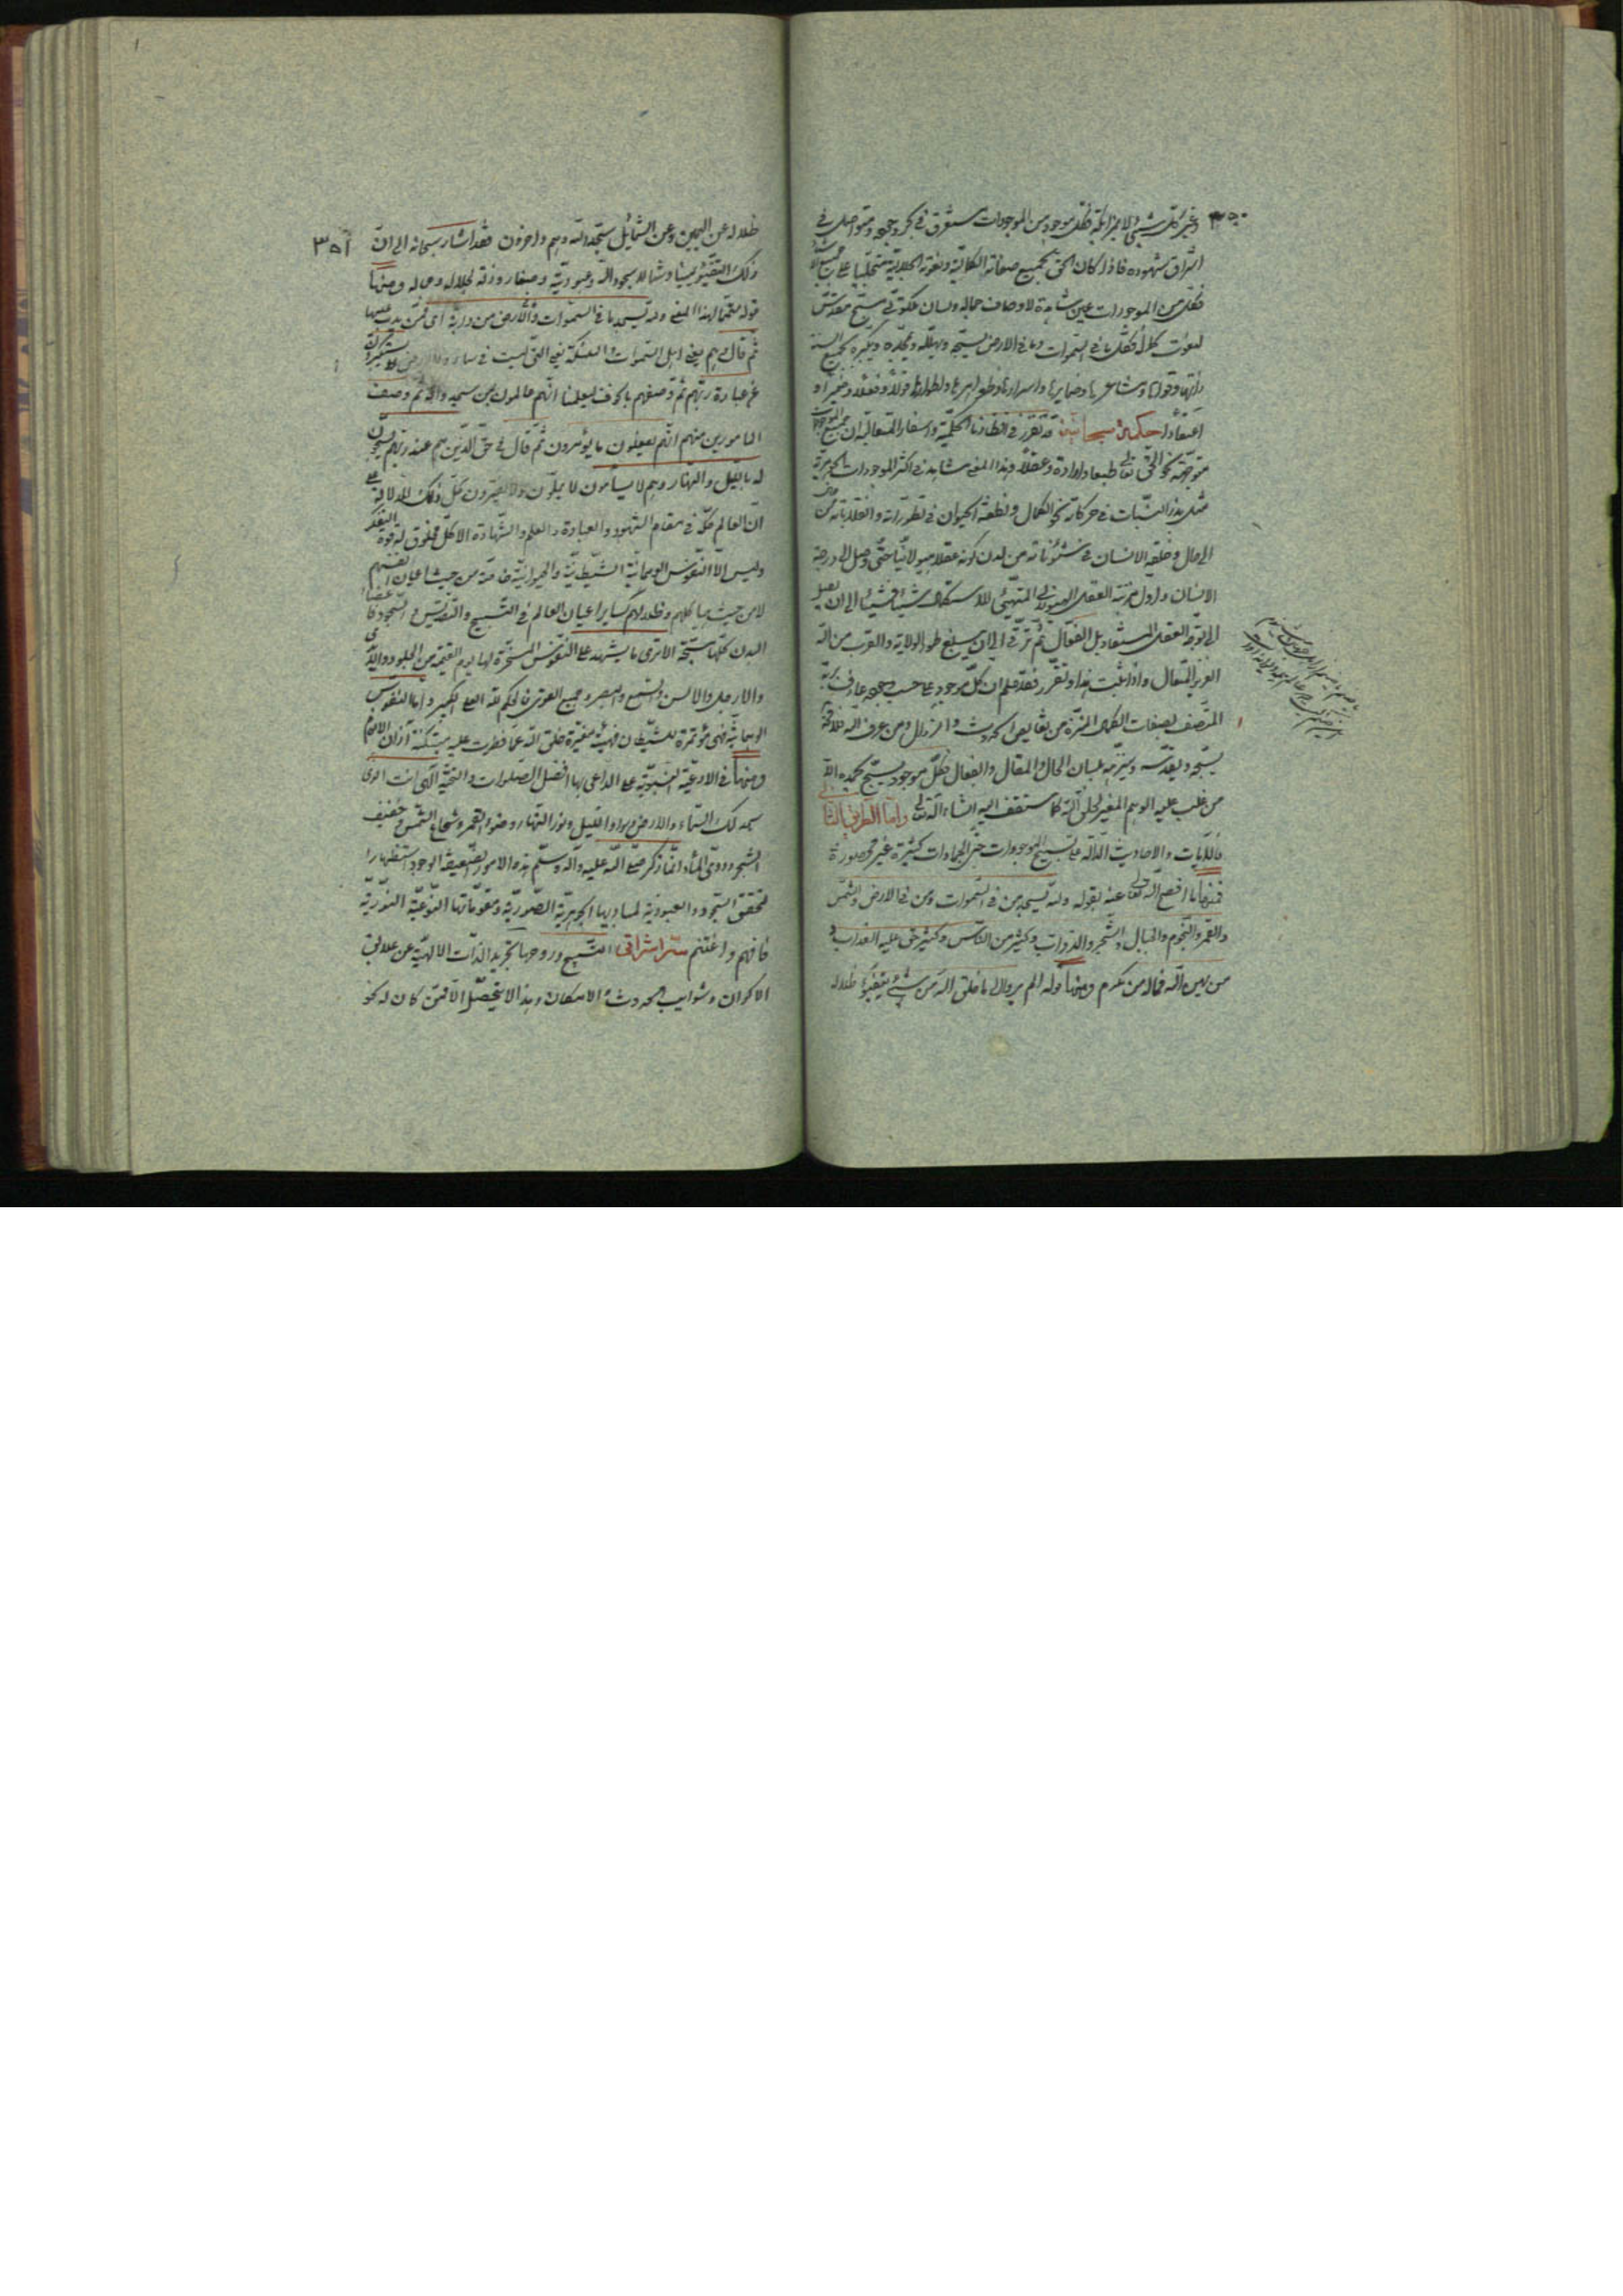 ٣٥٠
وغير كل شيئ لا بمزايلة فكل موجود من الموجودات مستغرق في وجهه ومتواصل في
اشراق شهوده فاذا كان الحق بجميع صفاته الكمالية ونعوته الجلالية متجليا على جميع الا
فكل من الموجودات عين شاهدة لاوصاف جماله ولسان ملكوتي مسبح مقدس
لنعوت فكل ما في السموات وما في الارض يسبحه ويهلله ويمجده ويكبره بجميع السنة
ذاتها وقواها ومشاعرها وضمايرها واسرارها وظواهرها واطوارها قولا وفعلا وضميرا و
اعتقادا حكمة سبحانية قد تقرر في انظارنا الحكمية واسفارنا المتعالية ان جميع الموجودات
متوجهة نحو الحق تعالى طبعا وارادة وعقلا وهذا المعنى مشاهد في اكثر الموجودات الجوهرية
مثل بذر النبات في حركاته نحو الكمال ونطفة الحيوان في تطوراته وانقلاباته من حال
الى حال وخلقة الانسان في شئوناته من لدن كونه عقلا هيولانيا حتى وصل الى درجة
الانسان واول مرتبة العقل الهيولاني المتهيئ للاستكمال شيئا فشيئا الى ان يصل
الى مرتبة العقل المستفاد بل الفعال ثم ترقى الى ان يبلغ طور الولاية والقرب من الله
العزيز المتعال واذا ثبت هذا وتقرر فقد علم ان كل موجود على حسب وجوده عارف بربه
المتصف بصفات الكمال المنزه من نقايص الحدوث والزوال ومن عرف الله فلا محالة
يسبحه ويقدسه وينزهه بلسان الحال والمقال والفعال فكل موجود يسبح بحمده الا
من غلب عليه الوهم المغير لخلق الله كما ستقف اليه انشاء الله تعالى واما الطريق الثا
فالآيات والاحاديث الدالة على تسبيح الموجودات حتى الجمادات كثيرة غير محصورة
فمنها ما افصح الله تعالى عنه بقوله ولله يسجد من في السموات ومن في الارض والشمس
والقمر والنجوم والجبال والشجر والدواب وكثير من الناس وكثير حق عليه العذاب و
من يهن الله فما له من مكرم ومنها قوله اولم يروا الى ما خلق الله من شيئ يتفيؤا ظلاله
٣٥١
ظلاله عن اليمين وعن الشمايل سجدا لله وهم داخرون فقد اشار سبحانه الى ان
ذلك التفيؤ يمينا وشمالا سجود لله وعبودية وصغار وذلة لجلاله وجماله ومنها
قوله متمما لهذا المعنى ولله يسجد ما في السموات والارض من دابة اى ممن يدب عليها
ثم قال وهم يعني اهل السموات والملئكة يعني التي ليست في سماء ولا ارض لا يستكبرون
عن عبادة ربهم ثم وصفهم بالخوف ليعلمنا انهم عالمون بمن سجدوا له ثم وصف
المامورين منهم انهم يفعلون ما يؤمرون ثم قال في حق الذين هم عند ربهم يسبحون
له بالليل والنهار وهم لا يسامون لا يملون ولا يفترون كل ذلك للدلالة على
ان العالم كله في مقام الشهود والعبادة والعلم والشهادة الا كل مخلوق له قوة التفكر
وليس الا النفوس الوهمانية الشيطانية والحيوانية خاصة من حيث اعيان انفسهم
لا من حيث هياكلهم وظلالهم كساير اعيان العالم في التسبيح والتقديس والسجود فاعضاء
البدن كلها مسبحة الا ترى ما يشهد على النفوس المسخرة لها يوم القيمة من الجلود والايدى
والارجل والالسن والسمع والبصر وجميع القوى فالحكم لله العلى الكبير واما النفوس
الوهمانية فهي مؤتمرة للشيطان فهي مغيرة خلق الله عما فطرت عليه مبتكة آذان الانعام
ومنها في الادعية النبوية على الداعى بها افضل الصلوات والتحية الهى انت الذى
سجد لك السماء والارض وسواد الليل ونور النهار وضوء القمر وشعاع الشمس وحفيف
الشجر ودوى الماء انما ذكر صلى الله عليه وآله وسلم هذه الامور الضعيفة الوجود استظهارا
لتحقق السجود والعبودية لمباديها الجوهرية الصورية ومقوماتها النوعية النورية
فافهم واغتنم ستر اشراقى التسبيح وروحها تجريد الذات الالهية عن علايق
الاكوان وشوايب الحدوث والامكان وهذا لا يتحصل الا فمن كان له نحو